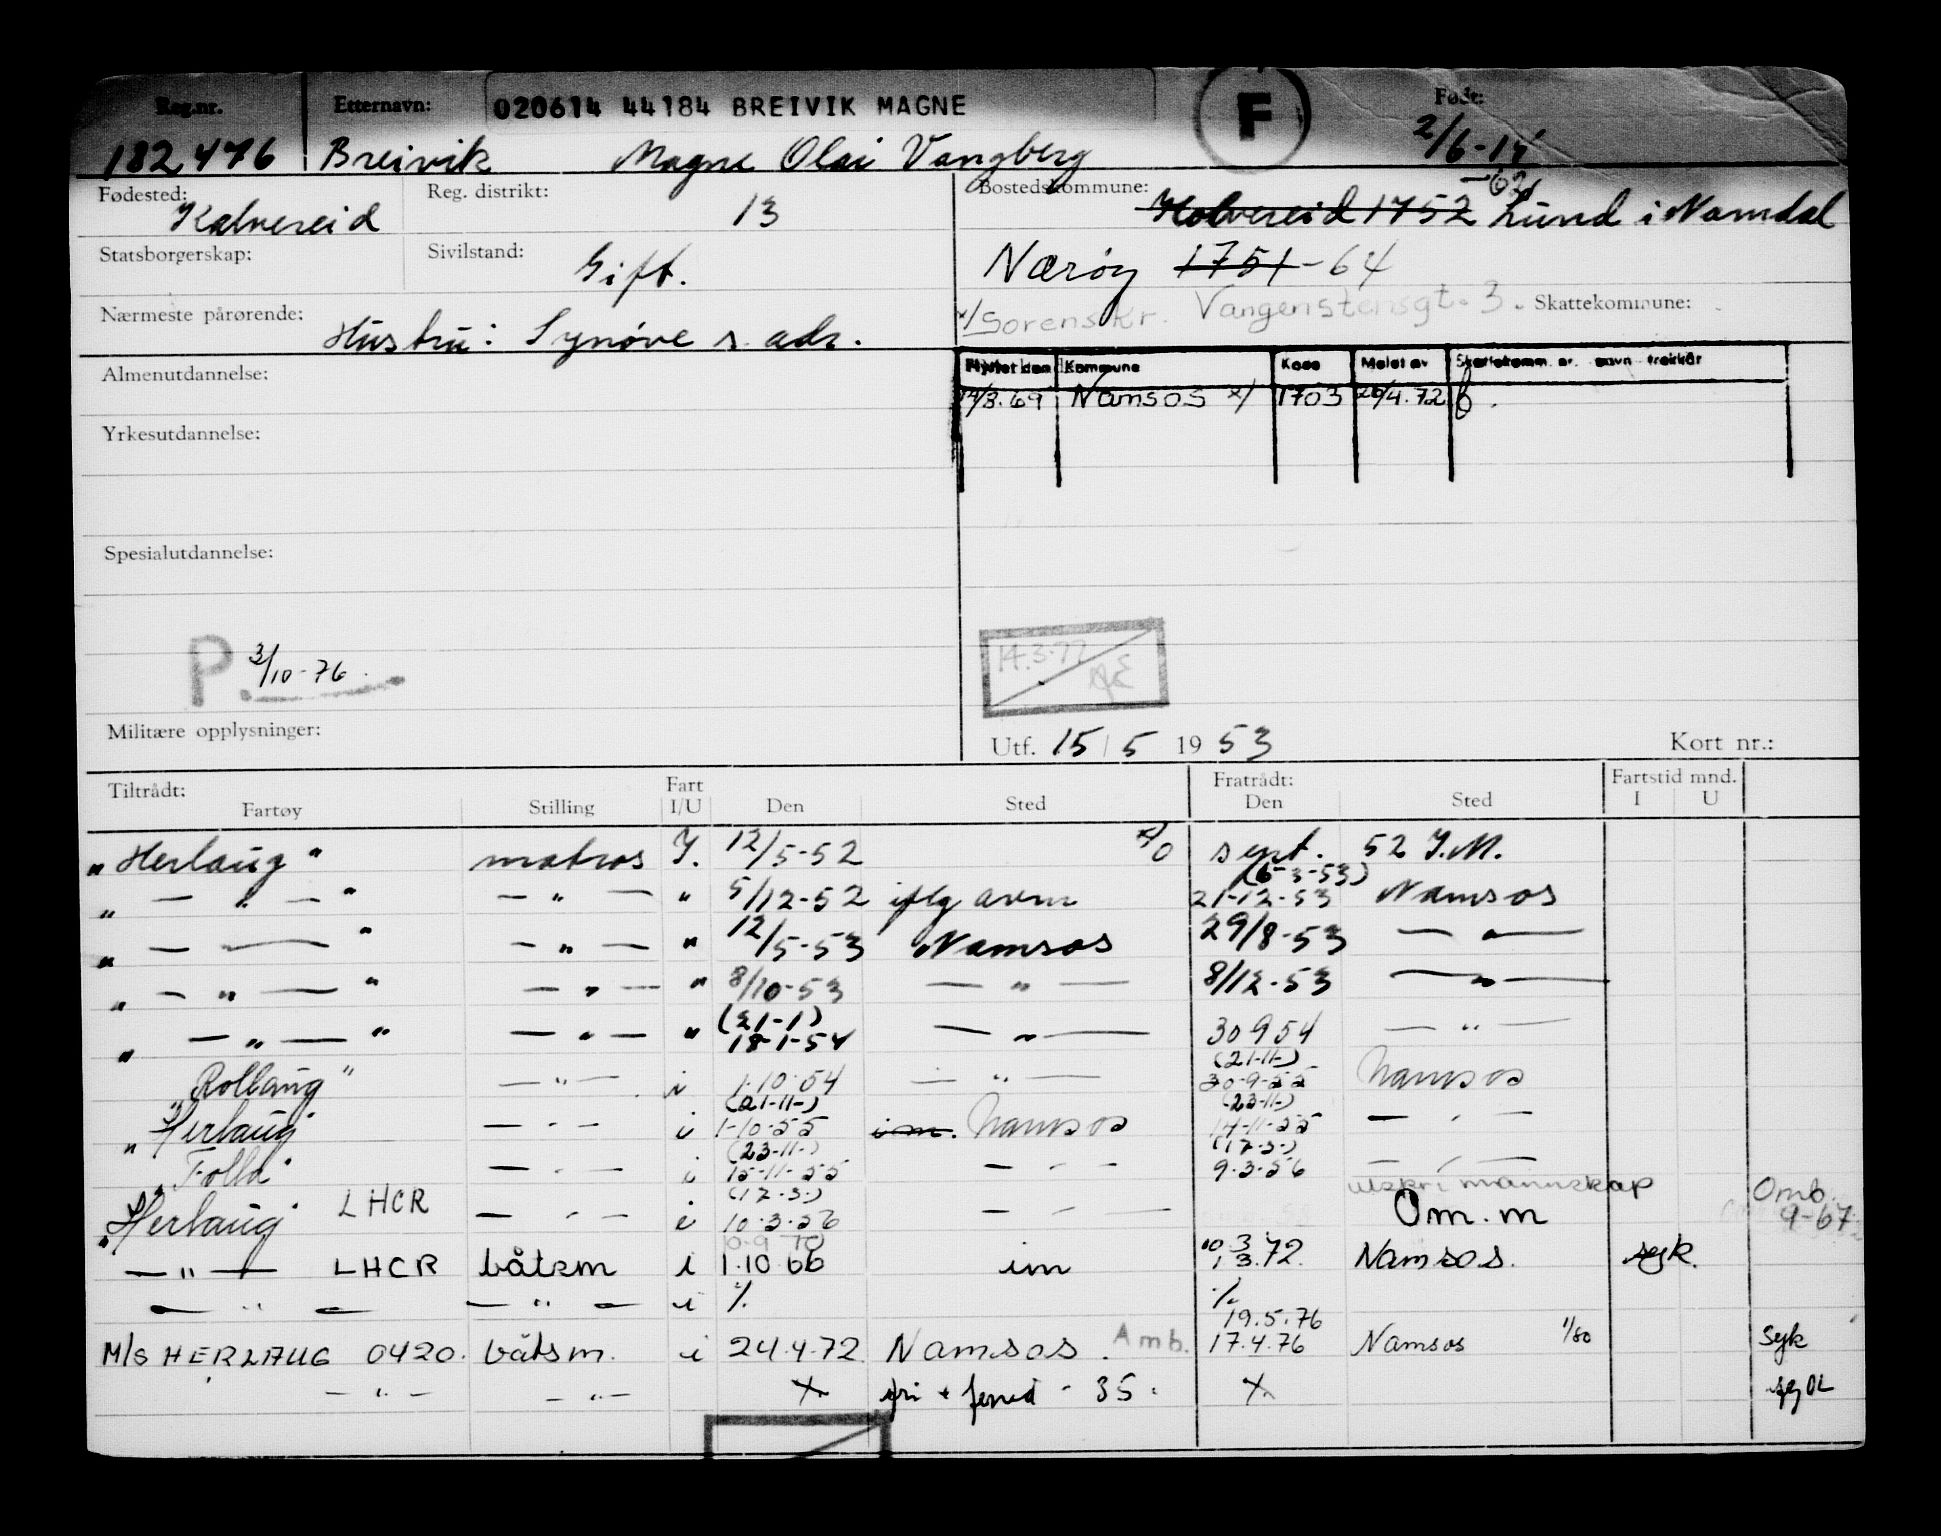 Reg.nr. Etternavn: 020614 44184 BREIVIK MAGNE F Født:
182476 Breivik Magne Olai Vangberg 2/6-14
Fødested: Reg. distrikt: Bostedskommune: -62
Kolvereid 13 Kolvereid 1752 Lund i Namdal
Statsborgerskap: Sivilstand:
Gift. Nærøy 1751-64
Nærmeste pårørende: x/Sorenskr. Vangenstensgt. 3. Skattekommune:
Hustru: Synøve s. adr.
Almenutdannelse: Flyttet den Kommune Kode Meldt av Skattekomm. nr. navn trekkår
/3.69 Namsos x/ 1703 26/4.72
Yrkesutdannelse:
Spesialutdannelse:
P. 3/10-76. 14.3.77
Militære opplysninger: Utf. 15/5 1953 Kort nr.:
Tiltrådt: Fart Fratrådt: Fartstid mnd.
Fartøy Stilling I/U Den Sted Den Sted I U
"Herlaug" matros I. 12/5-52 x/o sept. 52 I.M.
(6-3-53)
" — " — " — " — " 5/12-52 iflg avm 21-12-53 Namsos
" — " — " — " 12/5-53 Namsos 29/8-53 — " —
" — " — " — " — " 8/10-53 — " — 8/12-53 — " —
(21-1)
" — " — " — " — " 18-1-54 — " — 30 9 54 — " —
(21-11-)
"Rollaug" — " — i 1.10.54 — " — 30-9-55 Namsos
(21-11-) (23-11-)
"Herlaug" — " — i 1-10-55 i m. Namsos 14-11-55 — " —
(23-11-) (17-3-)
"Folla" — " — i 15-11-55 — " — 9.3.56 — " —
(17.3.) utskr. i mannskap Omb.
"Herlaug" LHCR — " — i 10.3.56 — " — Om.m 9-67
0.9 70 10 3 72
— " — LHCR båtsm i 1.10 66 im 1 3.72. Namsos. syk.
— " — — " — i %. %.
19.5.76
M/S HERLAUG 0420. båtsm. i 24.4.72 Namsos. Amb. 17.4.76 Namsos 1/80 Syk
— " — — " — X fri + feried - 35. X.